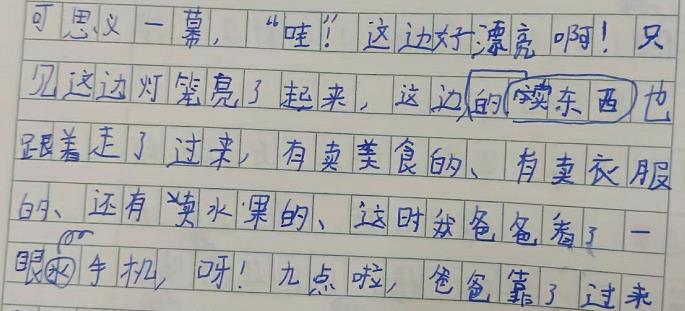 可思议一幕，“哇！这边好漂亮啊！只
见这边灯笼亮了起来，这边的卖东西也
跟着走了过来，有卖美食的、有卖衣服
的、还有卖水果的、这时我爸爸看了一
眼水手机，呀！九点啦，爸爸靠了过来